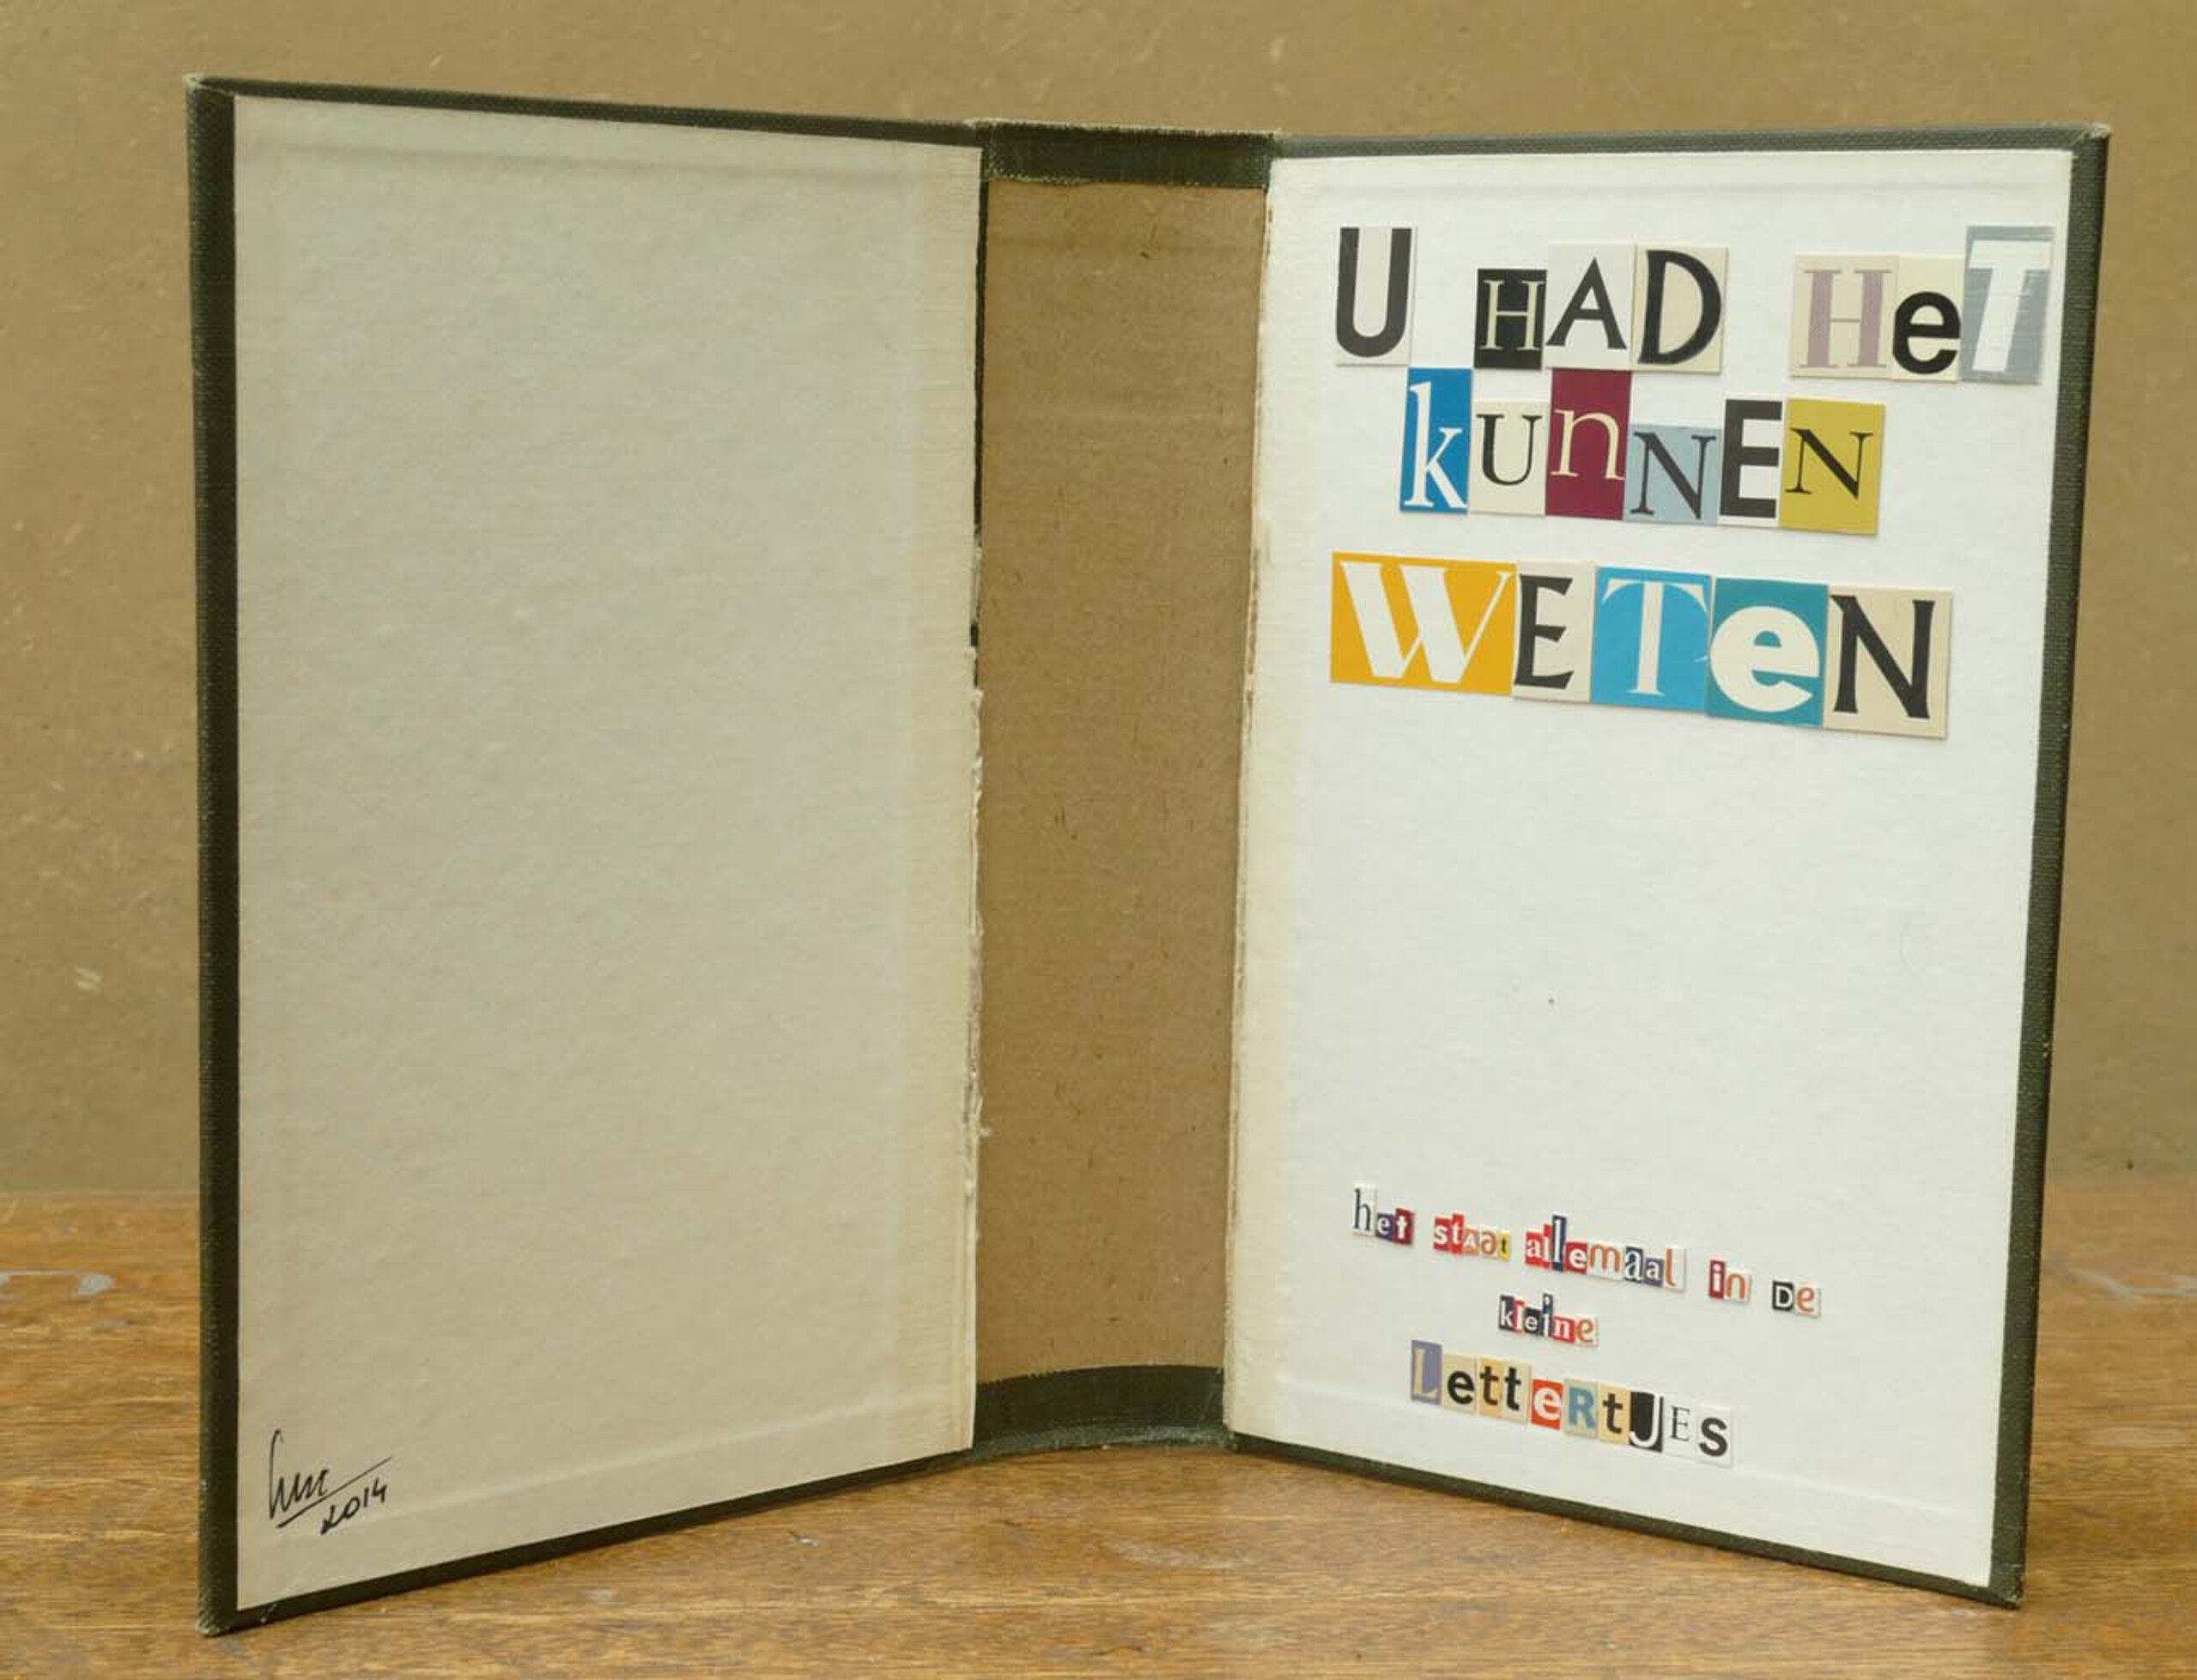 U HAD HeT
kUnNEN
WETeN
het stAat allemaal in De
kleine
LetteRtJES
2014